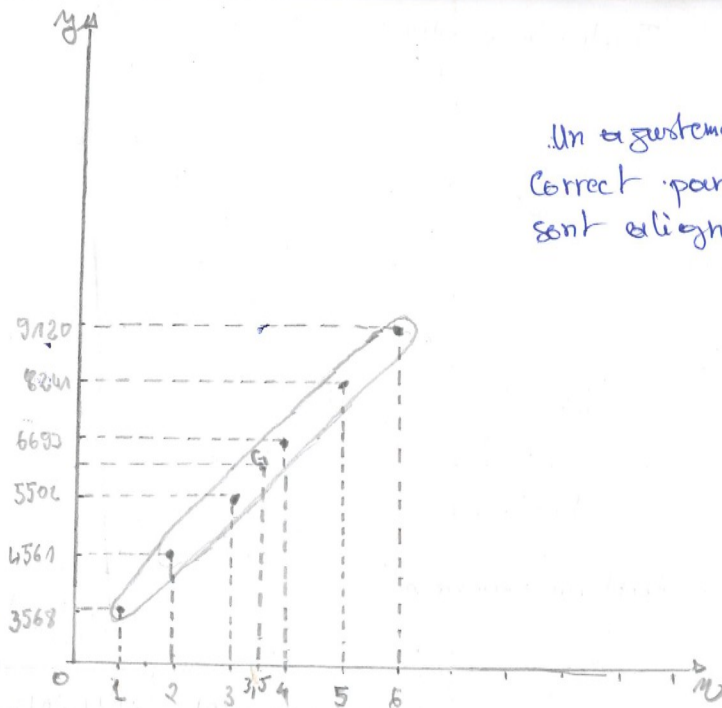 y
Un ajustem
Correct par
sont align
9120
8241
6693
G
5504
4561
3568
0 1 2 3 3,5 4 5 6